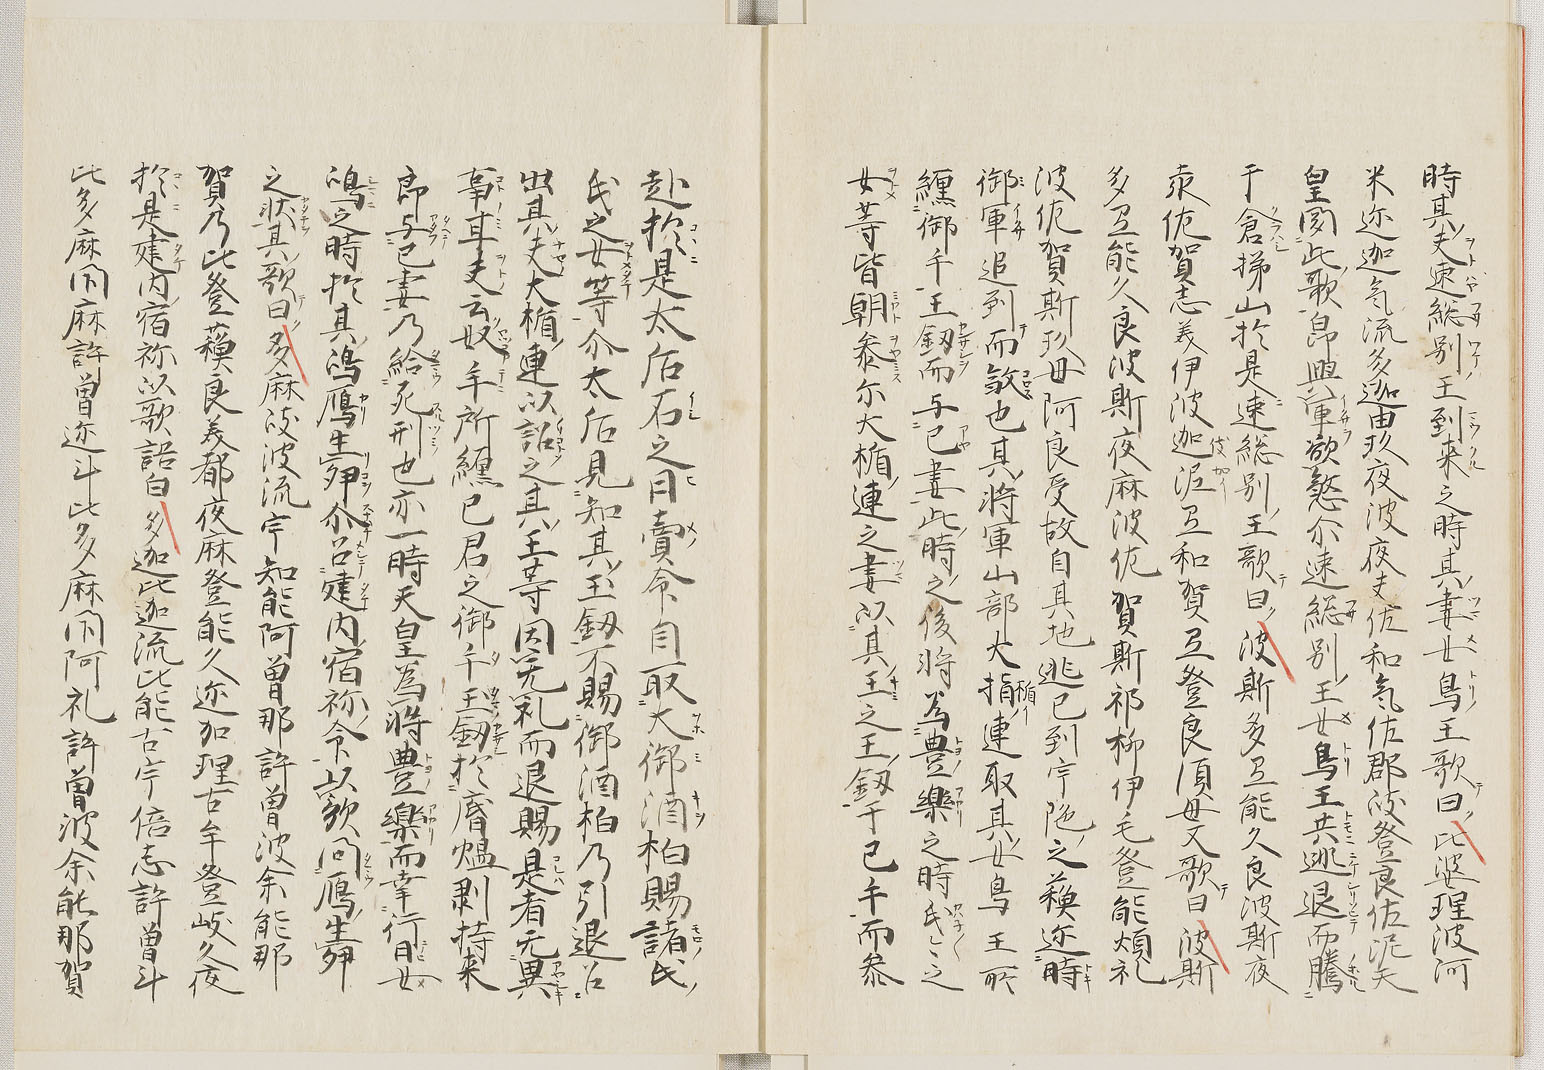 時其夫速総別王到来之時其妻女鳥王歌曰比婆理波阿
米迩迦氣流多迦由玖夜波夜夫佐和氣佐郡波登良佐泥天
皇聞此歌即興軍欲慤尒速総別王女鳥王共逃退而騰
于倉梯山於是速総別王歌曰波斯多弖能久良波斯夜
佐賀志義伊波迦泥弖和賀弖登良湏母又歌曰波斯
多弖能久良波斯夜麻波佐賀斯祁柳伊毛登能煩礼
波佐賀斯玖母阿良受故自其地逃已到宇陁之蘓迩時
御軍追到而敛也其将軍山部大指連取其女鳥王所
纒御手王釼而与己妻此時之後将為豊樂之時氏々之
女等皆朝叅尓大楯連之妻以其王之王釼于己手而叅
赴於是太后石之日賣令自取大御酒柏賜諸氏
氏之女等尒太后見知其王釼不賜御酒柏乃引退召
出其夫大楯連以詔之其王等因无礼而退賜是者无異
事耳夫云奴乎所纒己君之御手王釼於膚熅剥持来
即与己妻乃給死刑也亦一時天皇為将豊樂而幸行日女
嶋之時於其嶋鴈生卵尒召建内宿祢令以歌問鴈生卵
之状其歌曰多麻波流宇知能阿曽那許曽波余能那
賀乃比登蘓良義都夜麻登能久迩加理古牟登岐久夜
於是建内宿祢以歌語白多迦比迦流比能古宇倍志許曽斗
比多麻閇麻許曽迩斗比多麻閇阿礼許曽波余能那賀